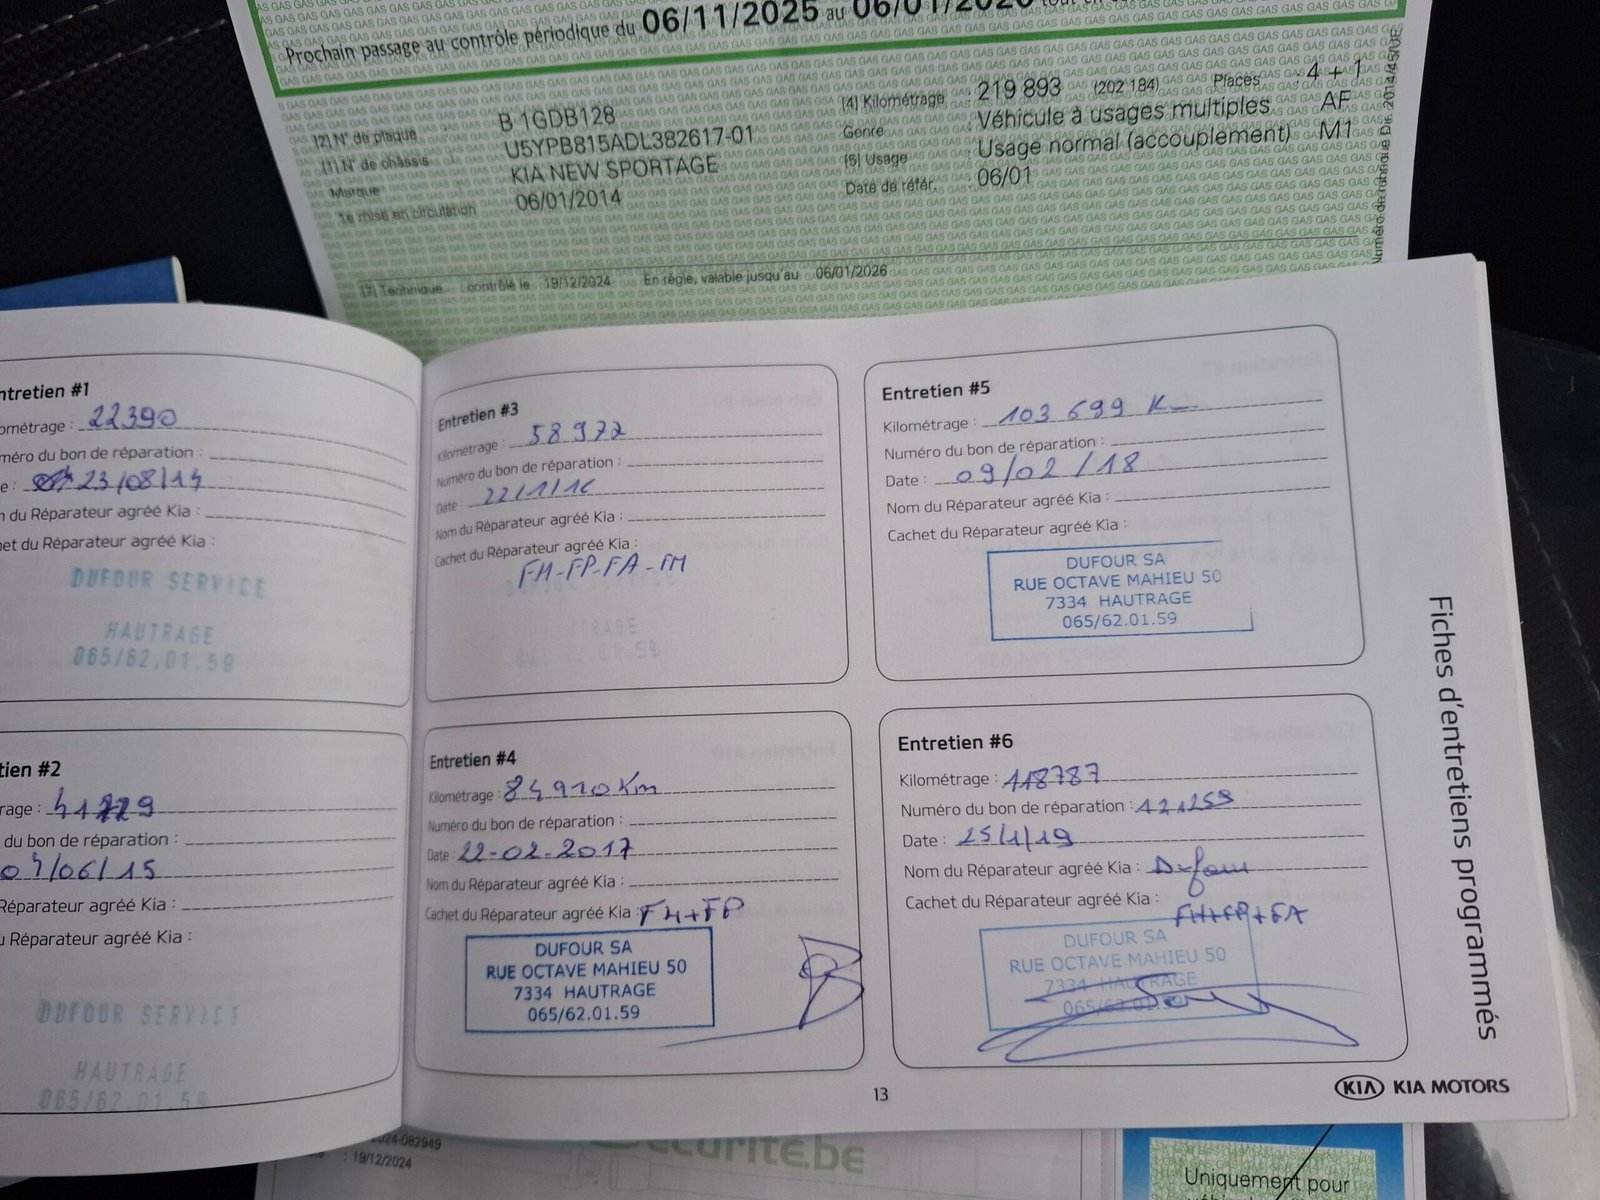 Prochain passage au contrôle périodique du 06/11/2025 au 06/01/2026
[2] N° de plaque B 1GDB128
[1] N° de châssis U5YPB815ADL382617-01
Marque KIA NEW SPORTAGE
1e mise en circulation 06/01/2014
[4] Kilométrage : 219 893 (202 184) Places : 4 + 1
Genre : Véhicule à usages multiples AF
[5] Usage : Usage normal (accouplement) M1
Date de référ. : 06/01
[7] Technique contrôlé le 19/12/2024 En règle, valable jusqu'au 06/01/2026
ntretien #1
ométrage : 22390
méro du bon de réparation :
e : 23/08/14
n du Réparateur agréé Kia :
het du Réparateur agréé Kia :
DUFOUR SERVICE
HAUTRAGE
065/62.01.59
tien #2
rage : 41779
du bon de réparation :
04/06/15
Réparateur agréé Kia :
u Réparateur agréé Kia :
DUFOUR SERVICE
HAUTRAGE
065/62.01.59
Entretien #3
Kilométrage : 58972
Numéro du bon de réparation :
Date : 22/1/16
Nom du Réparateur agréé Kia :
Cachet du Réparateur agréé Kia :
FH-FP-FA-FM
Entretien #4
Kilométrage : 84910 Km
Numéro du bon de réparation :
Date : 22-02-2017
Nom du Réparateur agréé Kia :
Cachet du Réparateur agréé Kia : FH+FP
DUFOUR SA
RUE OCTAVE MAHIEU 50
7334 HAUTRAGE
065/62.01.59
Entretien #5
Kilométrage : 103 699 Km
Numéro du bon de réparation :
Date : 09/02/18
Nom du Réparateur agréé Kia :
Cachet du Réparateur agréé Kia :
DUFOUR SA
RUE OCTAVE MAHIEU 50
7334 HAUTRAGE
065/62.01.59
Entretien #6
Kilométrage : 118787
Numéro du bon de réparation : 121259
Date : 25/1/19
Nom du Réparateur agréé Kia : Dufour
Cachet du Réparateur agréé Kia :
FH+FP+FA
DUFOUR SA
RUE OCTAVE MAHIEU 50
7334 HAUTRAGE
065/62.01.59
Fiches d'entretiens programmés
13
KIA KIA MOTORS
2024-082949
: 19/12/2024
écurité.be
Uniquement pour